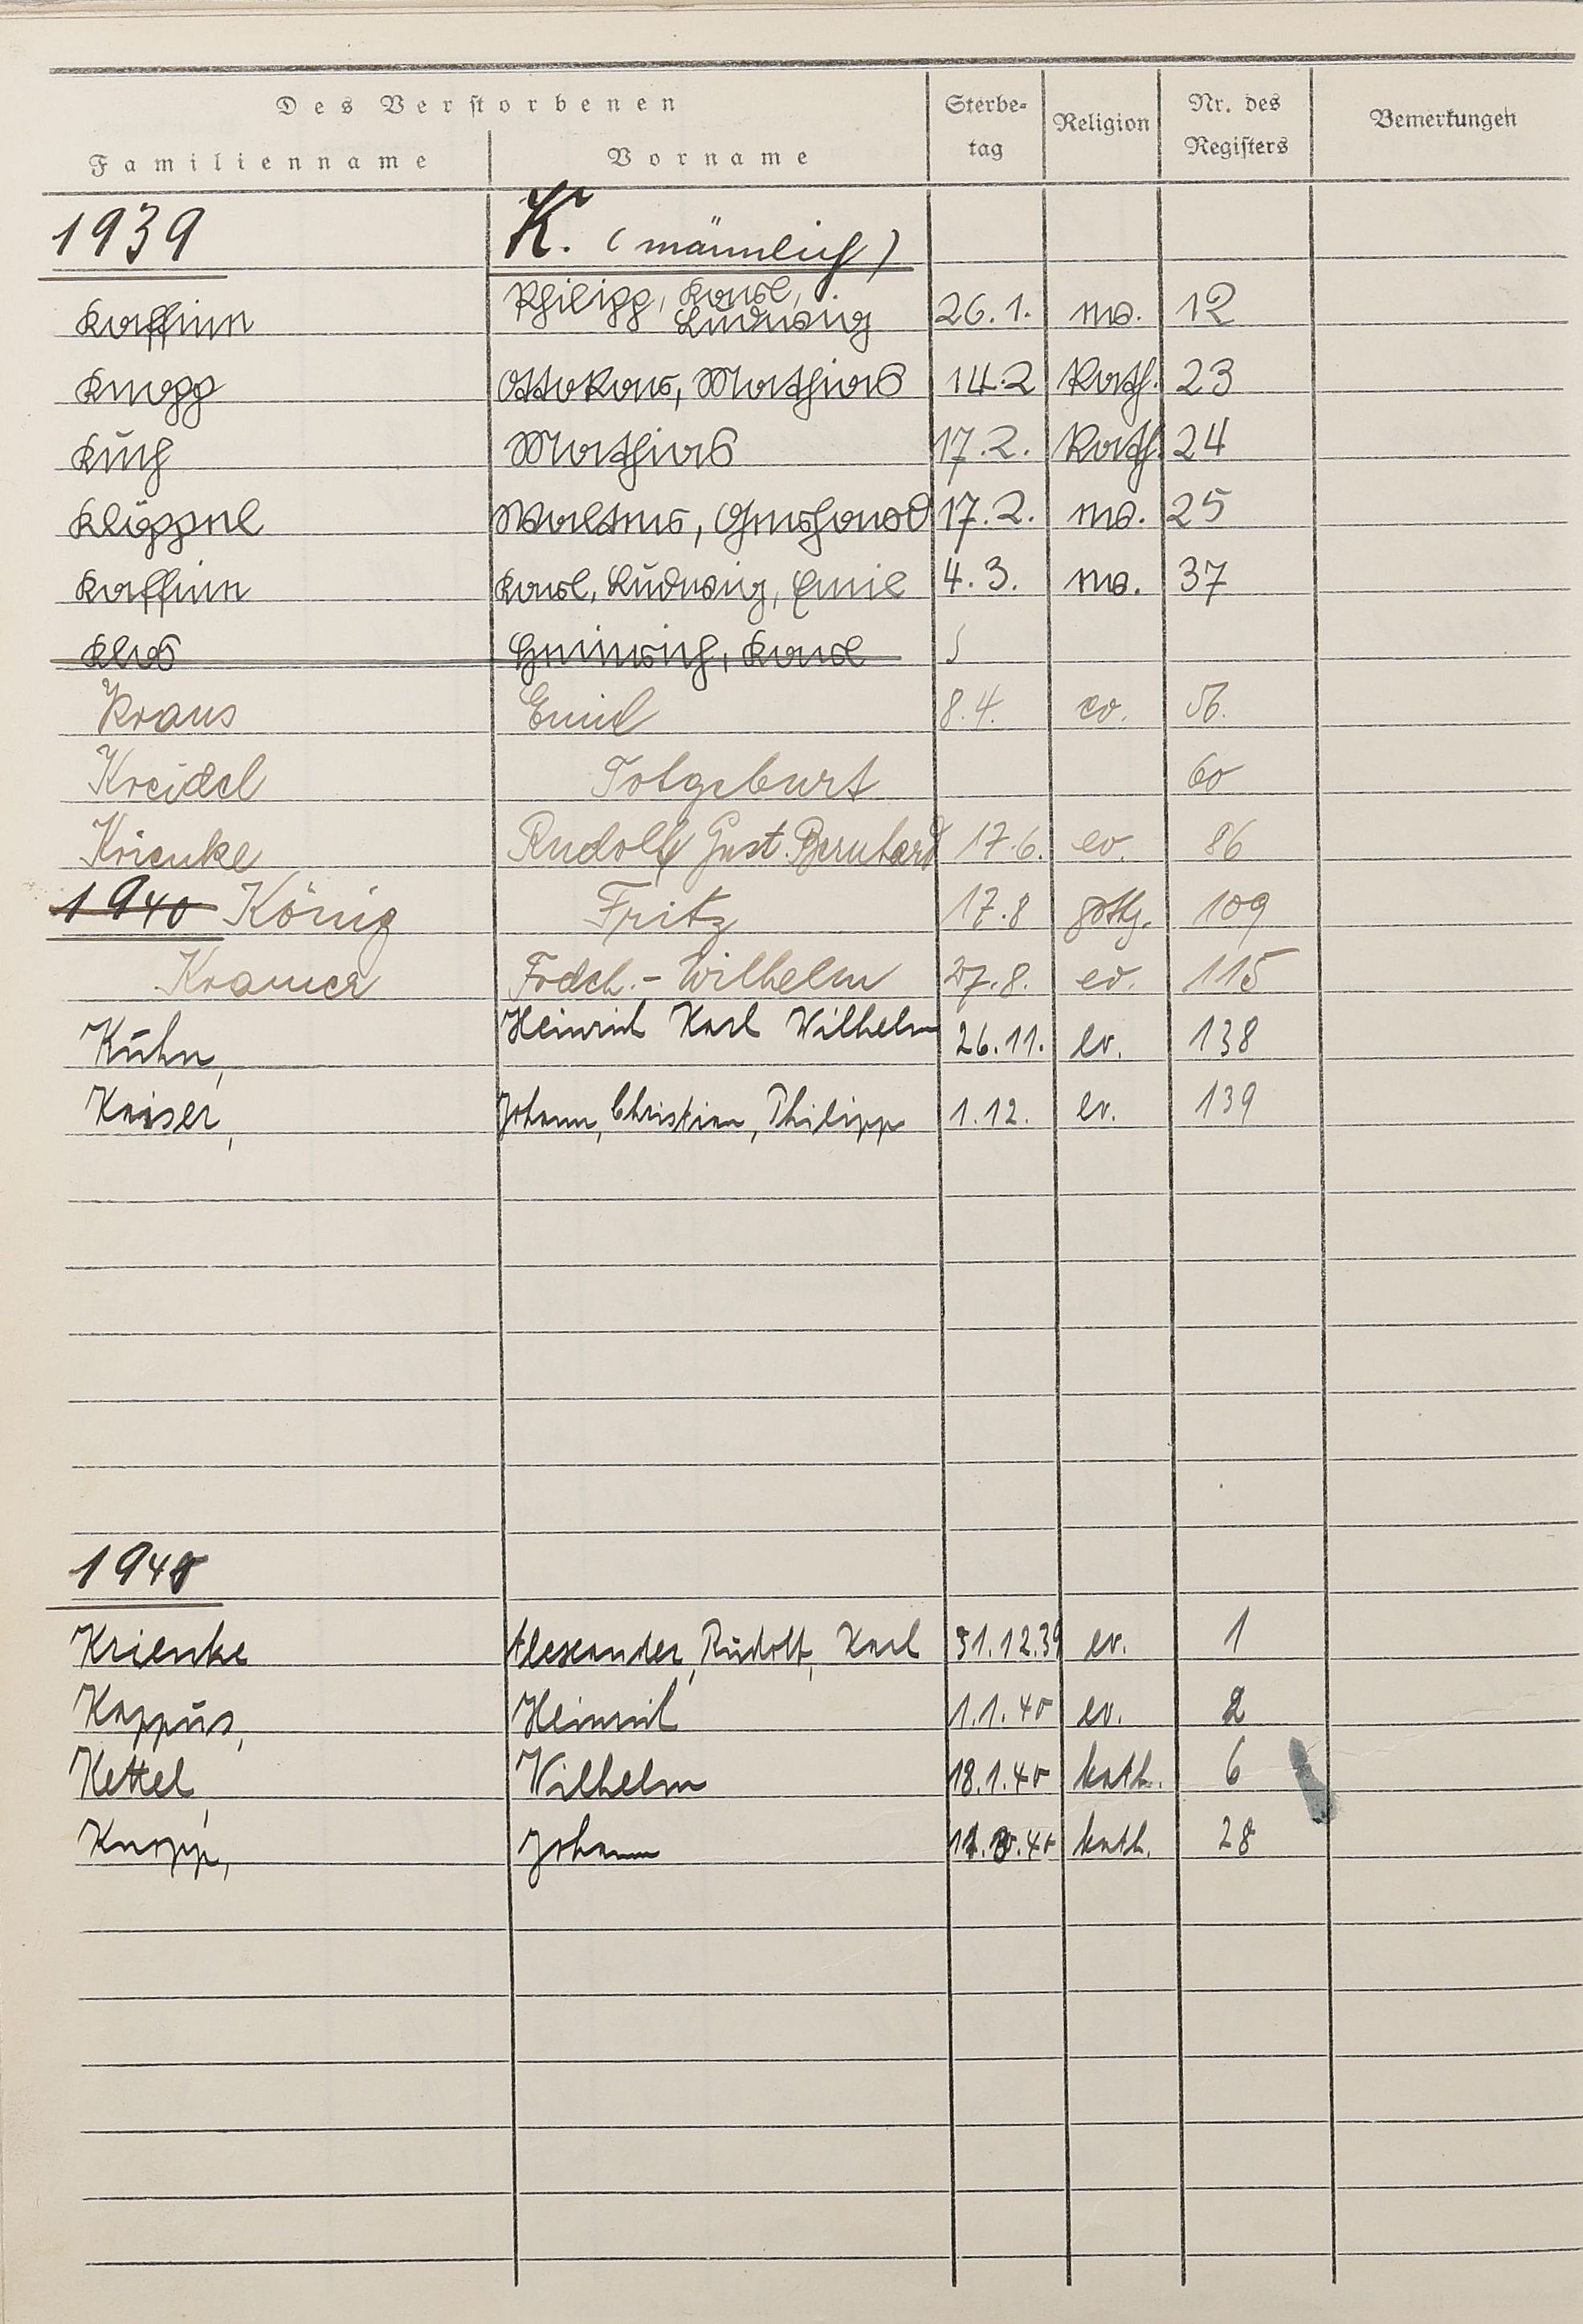 Des Verstorbenen
Sterbe-
tag
Religion
Nr. des
Registers
Bemerkungen
Familienname Vorname
1939 K. (männlich)
Philipp, Karl,
Kassine Ludwig 26.1. ev. 12
Knopp Ottokar, Mathias 14.2 Kath. 23
Kuch Mathias 17.2. Kath. 24
Klöppel Walter, Gerhard 17.2. ev. 25
Kassine Karl, Ludwig, Emil 4.3. ev. 37
Klos Heinrich, Karl
Kraus Emil 8.4. ev. 56.
Kreidel Totgeburt 60
Krienke Rudolf Gust. Bernhard 17.6. ev. 86
1940 König Fritz 17.8 gottg. 109
Kramer Frdch.-Wilhelm 27.8. ev. 115
Kühn, Heinrich Karl Wilhelm 26.11. ev. 138
Kaiser, Johann, Christian, Philipp 1.12. ev. 139
1940
Krienke Alexander, Rudolf, Karl 31.12.39 ev. 1
Kappus, Heinrich 1.1.40 ev. 2
Kettel, Wilhelm 18.1.40 kath. 6
Knopp, Johann kath. 28